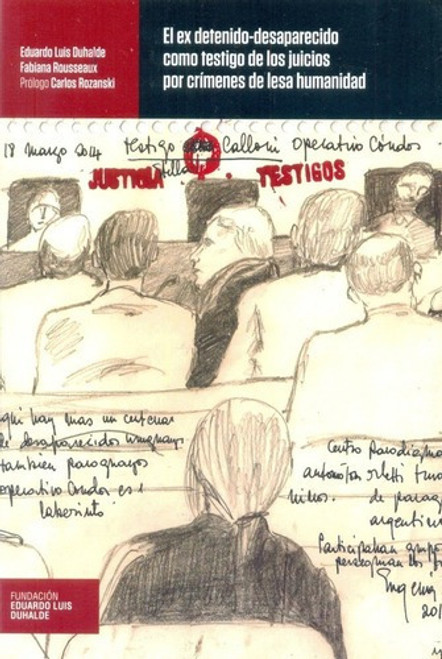 Eduardo Luis Duhalde
Fabiana Rousseaux
Prólogo Carlos Rozanski
El ex detenido-desaparecido
como testigo de los juicios
por crímenes de lesa humanidad
18 Marzo 2014 testigo Calloni Operativo Cóndor
Stella
JUSTICIA TESTIGOS
aqui hay mas un centenar
de desaparecidos uruguayos
tambien paraguayos
operativo Condor es
laberinto
Centro
de
argentin
Participaban grupo
Eugenia
FUNDACIÓN
EDUARDO LUIS
DUHALDE